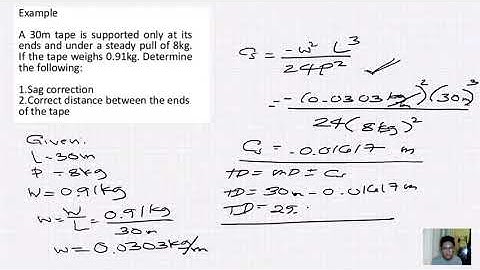 Example
A 30m tape is supported only at its
ends and under a steady pull of 8kg.
If the tape weighs 0.91kg. Determine
the following:
1.Sag correction
2.Correct distance between the ends
of the tape
Given:
L = 30m
P = 8kg
W = 0.91kg
w = W/L = 0.91kg/30m
w = 0.0303kg/m
Cs = -w² L³ / 24P²
= -(0.0303kg/m)² (30m)³ / 24(8kg)²
Cs = -0.01617 m
TD = MD ± Cs
TD = 30m - 0.01617m
TD = 29.